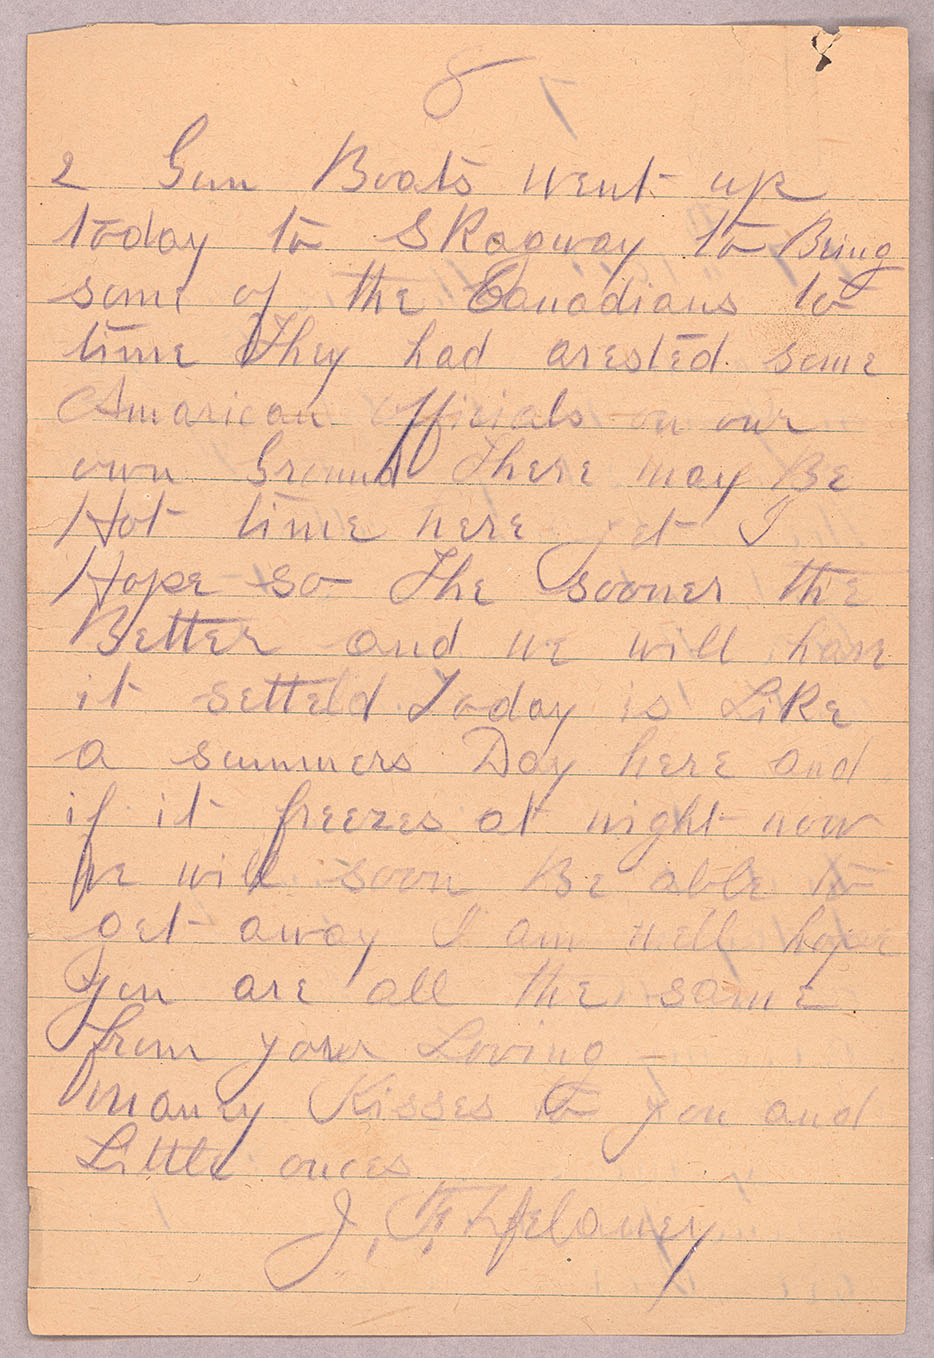 8
2 Gun Boats went up
today to SKagway to Bring
some of the Canadians to
time They had arested some
Amarican officials on our
own Ground There may Be
Hot time here yet I
Hope so The sooner the
Better and we will have
it setteld Today is LiKe
a summers Day here and
if it freezes at night now
we will soon Be able to
get away I am well hope
you are all the same
from your Loving
maney Kisses to you and
Little onces
J. F.